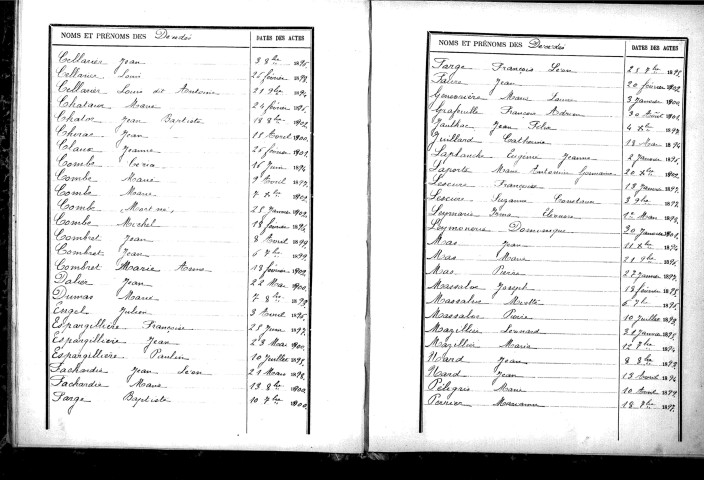 NOMS ET PRÉNOMS DES Décédés DATES DES ACTES
Cellarier Jean 3 8bre 1895
Cellarier Louis 25 février 1899
Cellarier Louis dit Antoine 21 9bre 189
Chataur Marie 24 février 1895
Chalvi Jean Baptiste 18 8bre 1902
Jean 18 Avril 1900
Claux Jeanne 25 février 1901
Combe 16 Juin 1894
Combe Marie 9 Avril 1897
Combe Marie 7 Xbre 1902
Combe Martini 25 Janvier 1902
Combe Michel 18 février 1896
Combret Jean 8 Avril 1899
Combret Jean 6 7bre 1899
Combret Marie Anne 13 février 1902
Dalier Jean 22 Mai 1900
Dumas Marie 7 8bre 1898
Engel Julien 3 Avril 1895
Espargillière Françoise 25 Juin 1897
Espargillière Jean 23 Mai 1900
Espargillière Paulin 10 Juillet 1895
Fachardie Jean Léon 21 Mars 1898
Fachardie Marie 13 8bre 1900
Farge Baptiste 10 7bre 1900
NOMS ET PRÉNOMS DES Décédés DATES DES ACTES
Farge François Léon 25 7bre 1895
Faure Jean 20 février 1902
Marie Louise 3 Janvier 1900
François Adrien 30 Août 1901
Jaulhac Jean Félix 4 Xbre 1897
Juillard Catherine 18 Mars 1894
Laplanche Eugénie Jeanne 2 Janvier 1895
Laporte Marie Antoinette Germaine 20 Xbre 1902
Lescure Françoise 18 Janvier 1897
Lescure Suzanne Constance 3 9bre 1897
Leymarie Irma Éléonore 1er Mars 1896
Leymonerie Dominique 30 Janvier 1901
Mas Jean 11 Xbre 1894
Mas Marie 21 9bre 1896
Mas Pierre 27 Janvier 1897
Massalve Joseph 18 février 1895
Massalve 6 7bre 1895
Massalve Pierre 10 Juillet 1898
Mazillier Léonard 31 Janvier 1891
Mazillier Marie 12 7bre 1894
Nard Jean 8 8bre 1899
Nard Jean 13 Avril 1894
Péligris Marie 10 Avril 1899
Perrier Marianne 18 7bre 1897